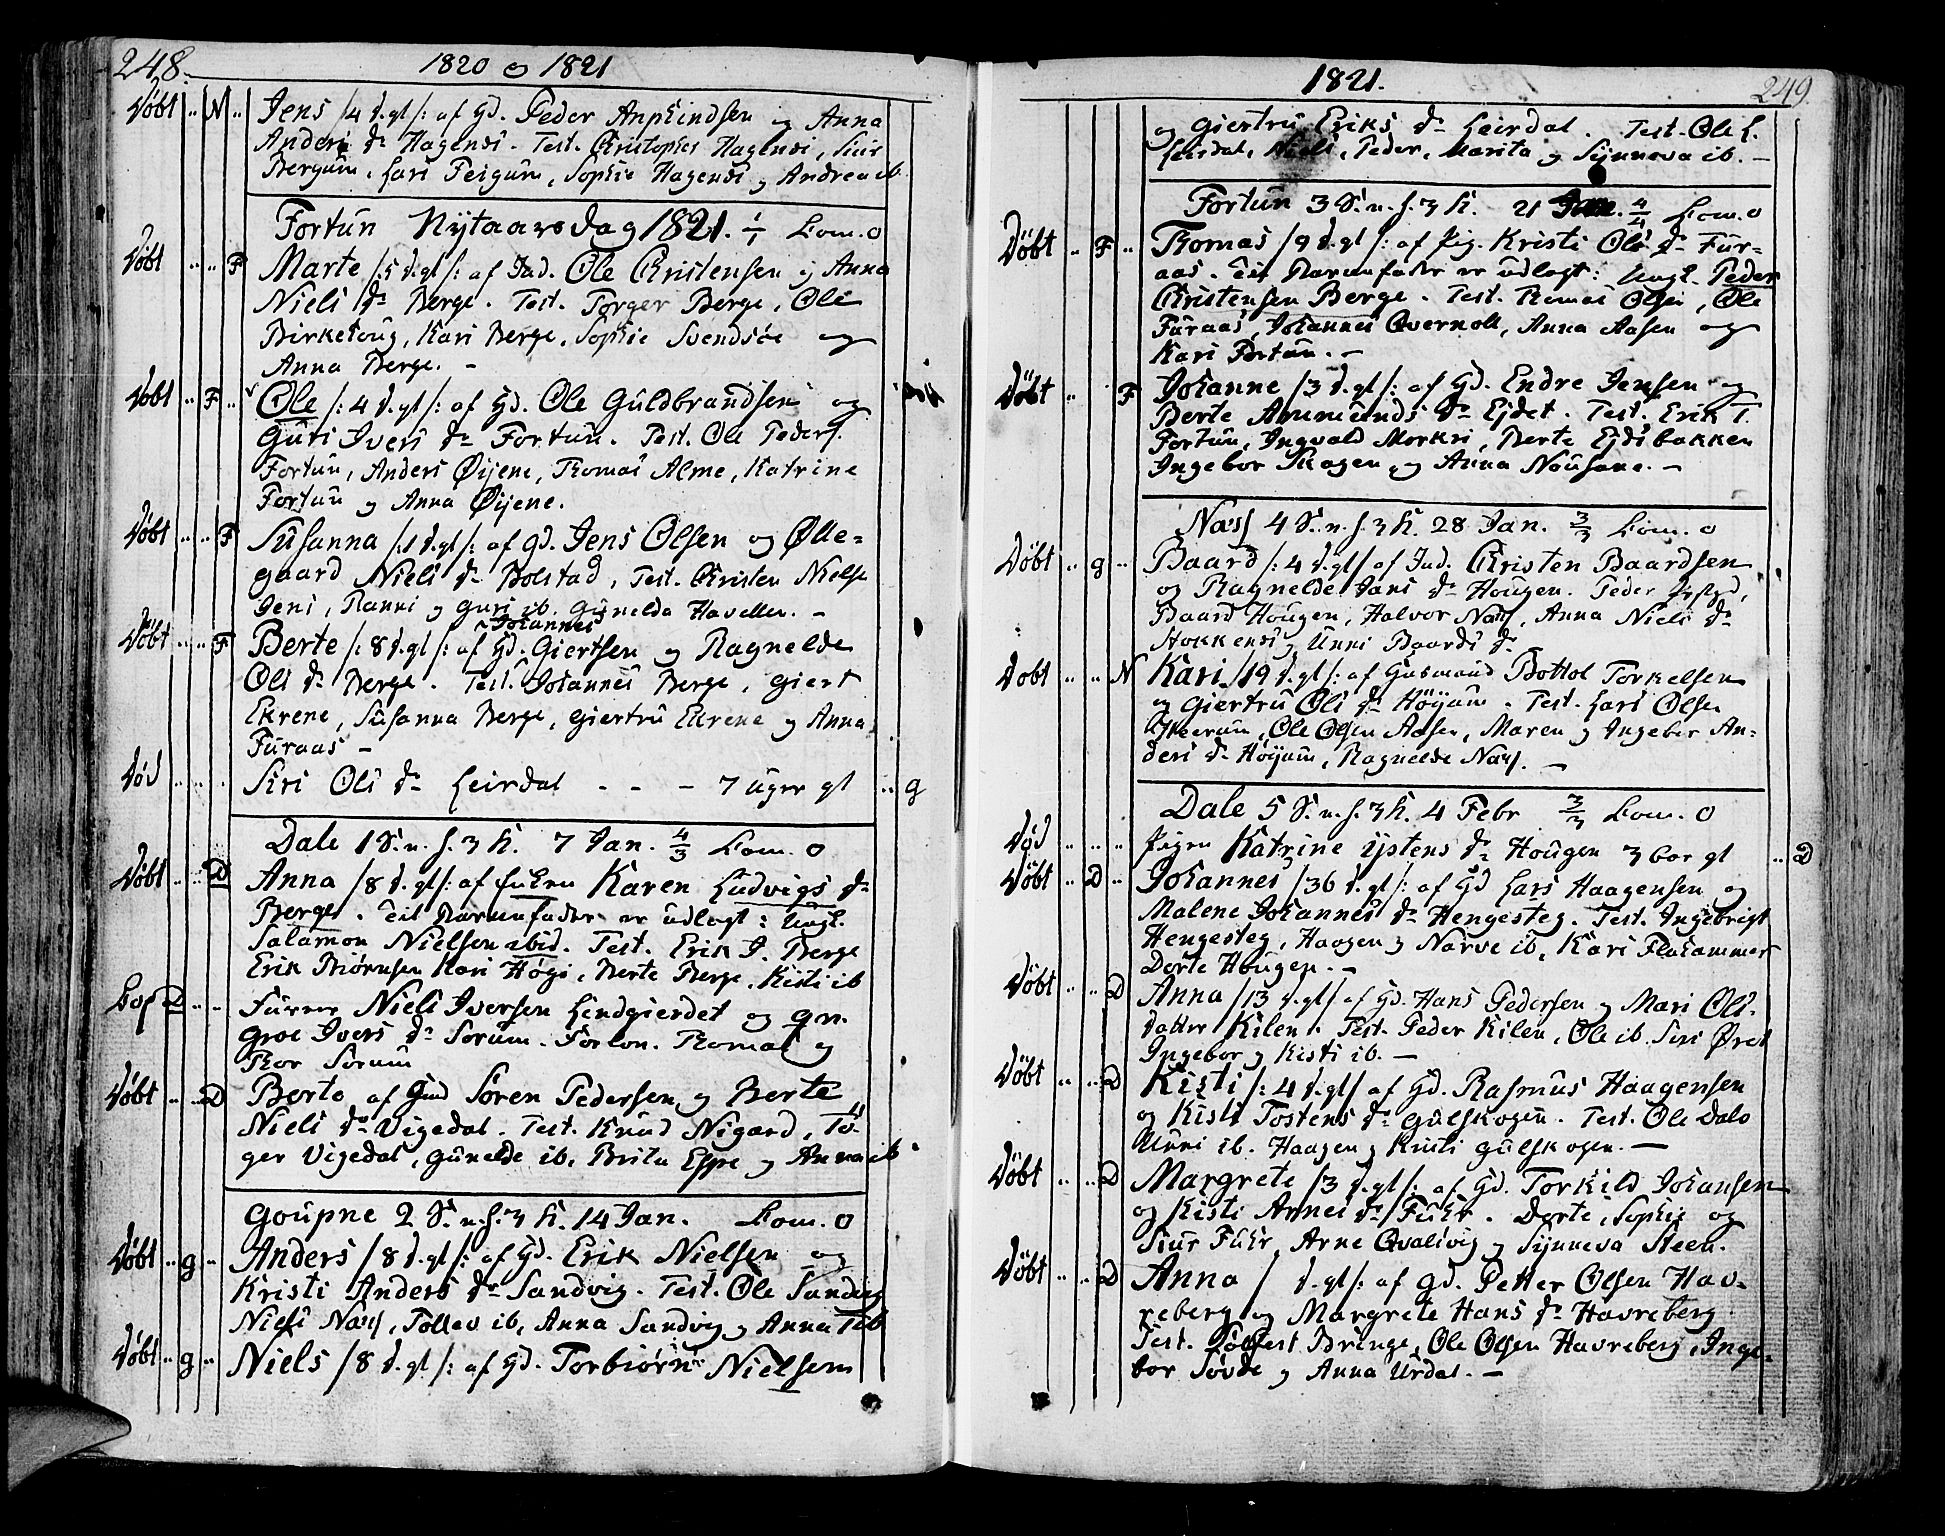 248.
1820 og 1821
Døbt N Jens /4 d.gl/: af Gd. Peder Anphindsen og Anna
Anders dr Hagensi. Test. Christopher Hagensi, Siur
Bergum, Lari Feigum, Sophie Hagensi og Andrea ib
Fortun Nÿtaarsdag 1821. 1/1 Com. 0
Døbt F Marte /:5 d.gl/: af Ind. Ole Christensen og Anna
Niels dr Berge. Test. Torger Berge, Ole
Birkehoug, Kari Berge, Sophie Svendsøe og
Anna Berge. -
Døbt F Ole /: 4 d.gl/: af Gd. Ole Guldbrandsen og
Guri Ivers dr Fortun. Test. Ole Peders.
Fortun, Anders Øÿene, Thomas Alme, Katrine
Fortun og Anna Øÿene.
Døbt F Susanna /:1 d.gl/: af gd. Jens Olsen og Ølle=
gaard Niels dr Bolstad, Test. Christen Niels
Jens, Ranni og Guri ib. Gunelda Havellen. -
Johannes
Døbt F Berte /: 8 d.gl/: af Gd. Giertsen og Ragnelde
Ols dr Berge. Test. Johannes Berge, Giert
Ekrene, Susanna Berge, Giertru Ekrene og Anna
Furaas -
Død Siri Ols dr Leirdal - - - 7 Uger gl g
Dale 1 S. n. h. 3 K. 7 Jan. 4/3 Com. 0
Døbt D Anna /8 d.gl/: af Karen Ludvigs dr
Berge. Til Barnefader er udlagt: Ungk.
Salamon Nielsen ibid. Test. Erik J. Berge
Erik Biørnsen Kari Høgi, Berte Berge, Kisti ib
Cop D Niels Iversen Lendgierdet og
groe Ivers dr Sorum. Forlov. Thomas og
Thor Sorum
Døbt D Berte af Gmd Sören Pedersen og Berte
Niels dr Vigedal. Test. Knud Nigard, To-
ger Vigedal, Gunelde ib, Brita Espe og Anna ib
Goupne 2 S. n. h. 3 K. 14 Jan. Com. 0
Døbt g Anders /8 d.gl/: af Gd. Erik Nielsen og
Kristi Anders dr Sandvig. Test. Ole Sandvig
Niels Næss, Tollev ib, Anna Sandvig og Anna T ib
Døbt g Niels /8 d.gl/: af Gd. Torbiørn Nielsen
1821.
249.
og Giertru Eriks dr Leirdal. Test. Ole L.
Leirdal, Niels, Peder, Marita og Sÿnneva ib. -
Fortun 3 S. n. h. 3 K. 21 Jan. 4/4 Com. 0
Døbt F Thomas /9 d.gl/: af Pig. Kristi Ols dr Fur-
aas. Til Barnefader er udlagt: Ungk. Peder
Christensen Berge. Test. Thomas Olsen, Ole
Furaas, Johannes Qvernoll, Anna Aasen og
Kari Fortun. -
Døbt F Johanne /3 d.gl/: af Gd. Endre Jensen og
Berte Ammunds dr Ejdet. Test. Erik T.
Fortun, Ingvald Morkri, Berte Ejdsbakken
Ingebor Skagen, og Anna Nousane. -
Næss 4 S. n. h. 3 K. 28 Jan. 3/3 Com. 0
Døbt g Baard /: 4 d.gl/ af Ind. Christen Baardsen
og Ragnelde Jans dr Hougen. Peder
Baard Hougen, Halvor Næss, Anna Niels dr
Stokkensi og Unni Baards dr
Døbt N Kari /19 d.gl/: af Gusmand Bottol Torkelsen
og Giertru Ols dr Höÿum. Test. Lars Olsen
Ole Olsen Aasen, Maren og Ingebor An=
ders dr Höÿum, Ragnelde Næss. -
Dale 5 S. n. h. 3 K. 4 Febr 3/3 Com. 0
Død Pigen Katrine ÿstens dr Hougen 3 gl D
Døbt D Johannes /36 d.gl/: af Gd Lars Haagensen og
Malene Johannes dr Hengesteg. Test. Ingebrigt
Hengesteg, Haagen og Narve ib, Kari Flahammer
Dorte Hougen. -
Døbt D Anna /13 d.gl/ af Gd. Hans Pedersen og Mari Ols-
datter Kilen. Test. Peder Kilen, Ole ib. Siri Øret
Ingebor og Kisti ib. -
Døbt D Kisti /: 4 d.gl/ af Gd. Rasmus Haagensen
og Kisti Tostens dr Gulskogen. Test. Ole Dale
Unni ib. Haagen og Kristi Gulskogen. -
Døbt D Margrete /3 d.gl/: af Gd. Torkild Johansen
og Kisti Arnes dr Fuhr. Dorte, Sophie og
Siur Fuhr, Arne Qvalsvig og Sÿnneva Steen.
Døbt D Anna / d.gl/: af gd. Petter Olsen Hav-
reberg og Margrete Hans dr Havreberg
Test. Bringe, Ole Olsen Havreberg, Inge-
bor Søvde og Anna Urdal. -